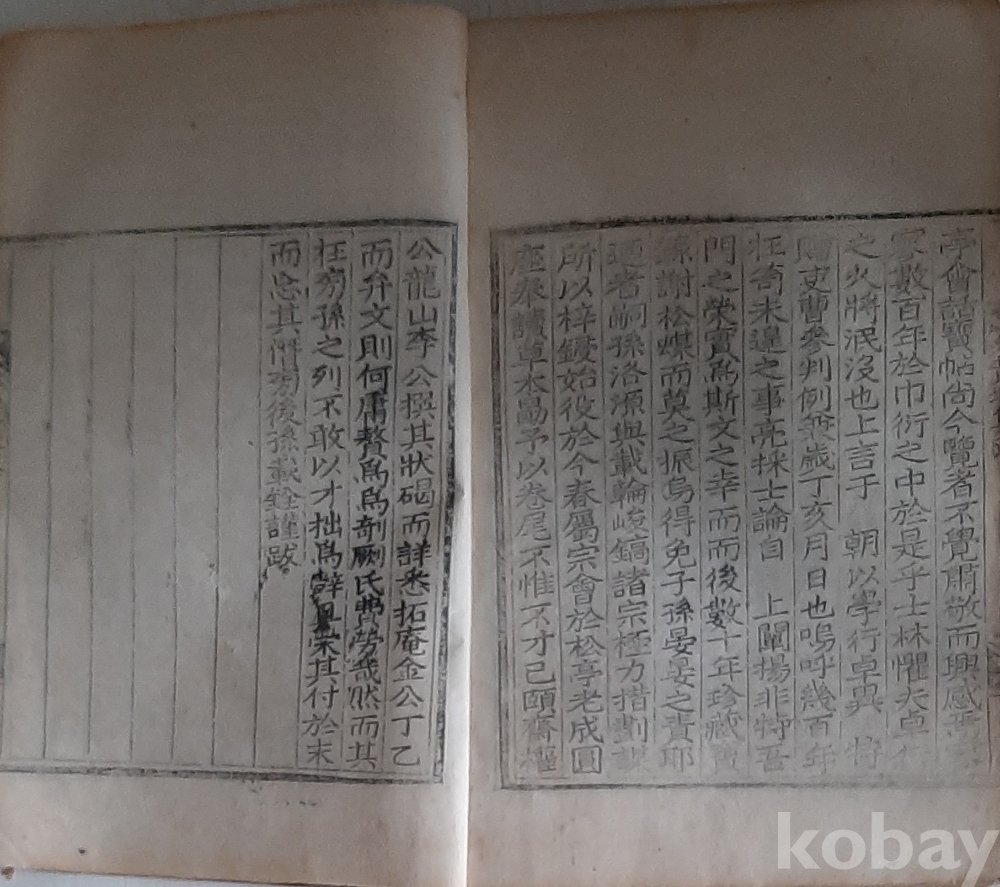 亭會話寶帖尙今覽者不覺肅敬而興感焉
家數百年於巾衍之中於是乎士林懼夫卓行
之火將泯沒也上言于 朝以學行卓異 特
贈吏曹參判例無歲丁亥月日也嗚呼幾百年
枉寄未遑之事亮採士論自 上闡揚非特吾
門之榮實爲斯文之幸而而後數十年珍藏
孫謝松煤而莫之振烏得免子孫晏晏之責耶
迺者嗣孫洛源與載輪峻鎬諸宗極力措劃
所以梓鋟始役於今春屬宗會於松亭老成圓
座奉讀草本勗予以卷尾不惟不才已頤齋權
公龍山李公撰其狀碣而詳悉拓庵金公丁乙
而弁文則何庸贅爲爲剞劂氏費勞哉然而其
在旁孫之列不敢以才拙爲辭且榮其付於末
而忘其 旁後孫載銓謹跋
kobay